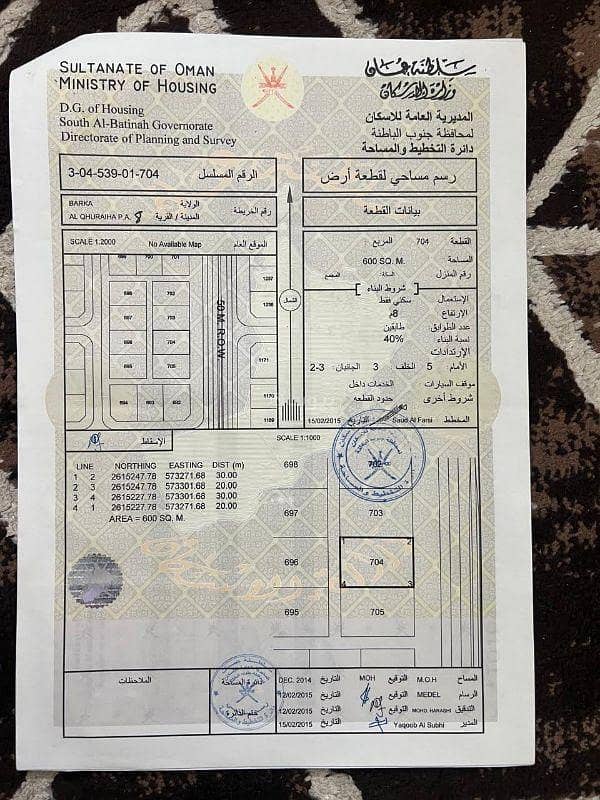 SULTANATE OF OMAN
MINISTRY OF HOUSING
D.G. of Housing
South Al-Batinah Governorate
Directorate of Planning and Survey
سلطنة عمان
وزارة الإسكان
المديرية العامة للاسكان
لمحافظة جنوب الباطنة
دائرة التخطيط والمساحة
3-04-539-01-704 الرقم المسلسل
رسم مساحي لقطعة أرض
BARKA الولاية
AL QHURAIHA P.A. 8 المدينة / القرية
رقم الخريطة
بيانات القطعة
SCALE 1:2000 No Available Map الموقع العام
القطعة 704 المربع
المساحة 600 SQ. M.
رقم المنزل السكة: المجمع
شروط البناء
الإستعمال سكني فقط
الإرتفاع 8م
عدد الطوابق: طابقين
نسبة البناء 40%
الإرتدادات
الأمام: 5 الخلف: 3 الجانبان: 3-2
موقف السيارات الخدمات داخل
شروط أخرى حدود القطعه
المخطط Saud Al Farsi التاريخ 15/02/2015
الشمال
50 M R.O.W.
700 701
699 702
698 703
697 704
696 705
604 603 602
1237
1236
1171
1170
1169
الإسقاط
SCALE 1:1000
LINE NORTHING EASTING DIST (m)
1 2 2615247.78 573271.68 30.00
2 3 2615247.78 573301.68 20.00
3 4 2615227.78 573301.68 30.00
4 1 2615227.78 573271.68 20.00
AREA = 600 SQ. M.
698 702
697 703
696 704
695 705
1 2
4 3
الملاحظات
دائرة المساحة
ختم الدائرة
DEC. 2014 التاريخ MOH التوقيع M.O.H المساح
12/02/2015 التاريخ التوقيع MEDEL الرسام
12/02/2015 التاريخ التوقيع MOHD. HARASHI التدقيق
15/02/2015 التاريخ Yaqoob Al Subhi المدير